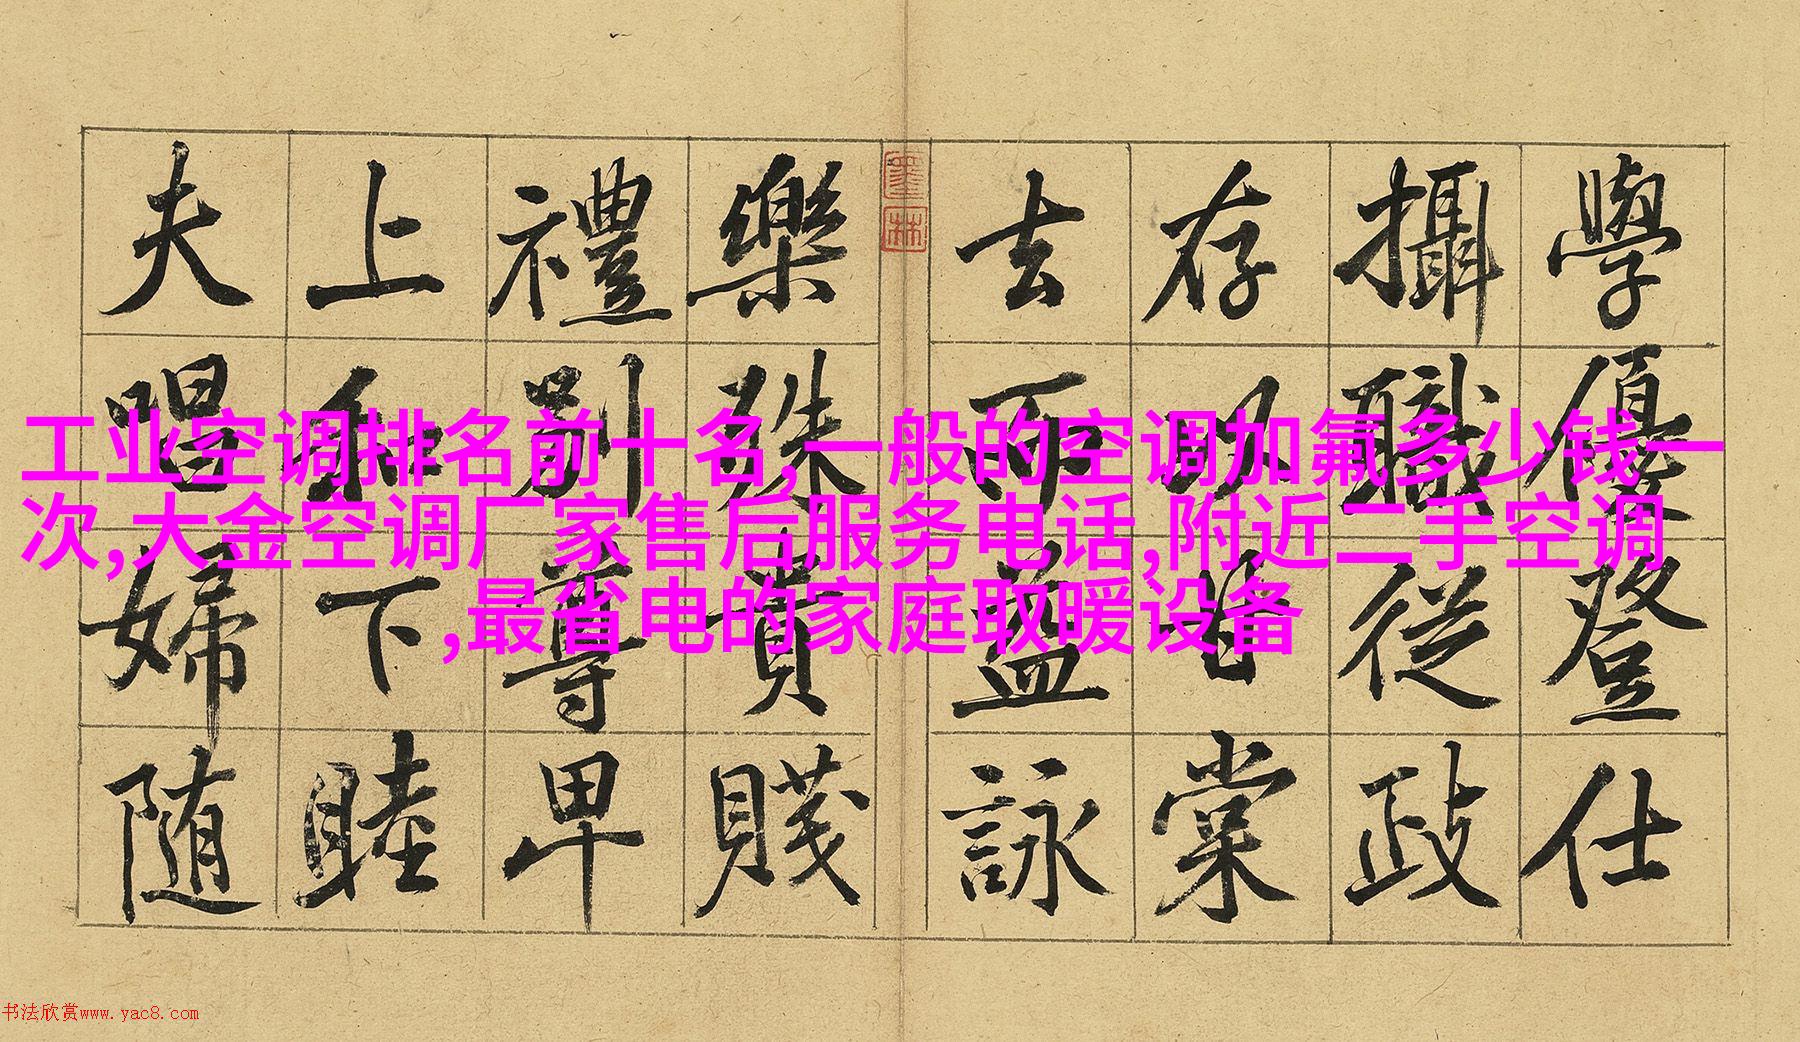 學優登仕
攝職從政
存以甘棠
去而益詠
樂殊貴賤
禮別尊卑
上和下睦
夫唱婦随
墨林
工业空调排名前十名,一般的空调加氟多少钱一
次,大金空调厂家售后服务电话,附近二手空调
,最省电的家庭取暖设备
书法欣赏www.yac8.com